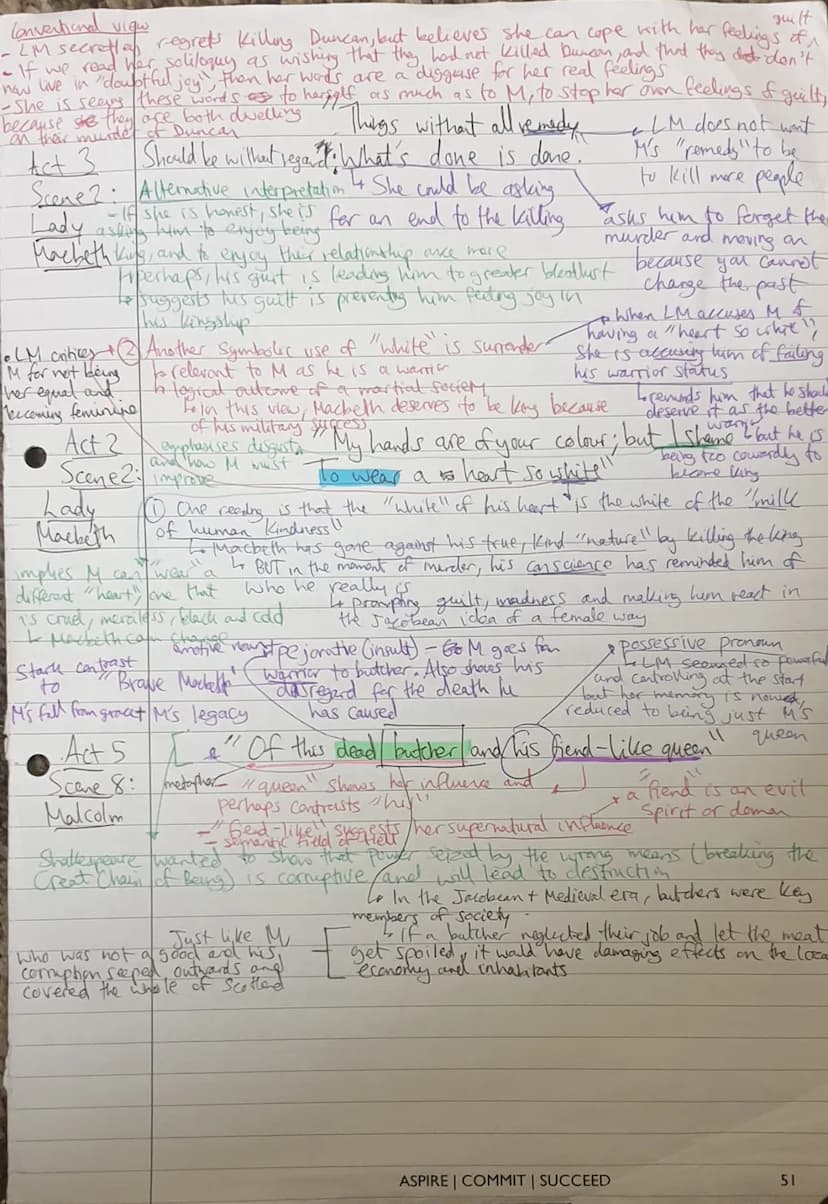 Conventional view
- LM secretly regrets killing Duncan, but believes she can cope with her feelings of guilt
- If we read her soliloquy as wishing that they had not killed Duncan, and that they don't
now live in "doubtful joy", then her words are a disguise for her real feelings
- She is these words to herself as much as to M, to stop her own feelings of guilt,
because they are both dwelling
on their murder of Duncan
Act 3
Scene 2:
Lady
Macbeth
"Things without all remedy
Should be without regard: What's done is done.
↳ She could be asking
for an end to the killing
LM does not want
M's "remedy" to be
to kill more people
asks him to forget the
murder and moving on
because you cannot
change the past
Alternative interpretation
- If she is honest, she is
asking him to enjoy being
king, and to enjoy their relationship once more
↳ perhaps, his guilt is leading him to greater bloodlust
↳ suggests his guilt is preventing him feeling joy in
his kingship
• LM critices
M for not being
her equal and
becoming feminine
② Another symbolic use of "white" is surrender
↳ relevant to M as he is a warrior
↳ logical outcome of a martial society
↳ In this view, Macbeth deserves to be king because
of his military success
When LM accuses M of
having a "heart so white",
she is accusing him of failing
his warrior status
↳ reminds him that he should
deserve it as the better
warrior
↳ but he is
being too cowardly to
become king
Act 2
Scene 2:
Lady
Macbeth
emphasises disgust
and how M must
improve
"My hands are of your colour; but I shame
To wear a heart so white"
① One reading is that the "white" of his heart is the white of the "milk
of human kindness"
↳ Macbeth has gone against his true, kind "nature" by killing the king
↳ BUT in the moment of murder, his conscience has reminded him of
who he really is
↳ prompting guilt, madness and making him react in
the Jacobean idea of a female way
implies M can "wear" a
different "heart", one that
is cruel, merciless, black and cold
↳ Macbeth can change
emotive noun
↳ pejorative (insult) - M goes from
warrior to butcher. Also shows his
disregard for the death he
has caused
Stark contrast
to "Brave Macbeth"
M's fall from grace + M's legacy
possessive pronoun
↳ LM seemed so powerful
and controlling at the start
but her memory is now
reduced to being just M's
queen
Act 5
Scene 8:
Malcolm
"Of this dead butcher and his fiend-like queen"
metaphor
- "queen" shows her influence and
perhaps contrasts "his"
- "fiend-like" suggests her supernatural influence
- semantic field of Hell
a "fiend" is an evil
spirit or demon
Shakespeare wanted to show that power seized by the wrong means (breaking the
Great Chain of Being) is corruptive and will lead to destruction
↳ In the Jacobean + Medieval era, butchers were key
members of society.
↳ If a butcher neglected their job and let the meat
get spoiled, it would have damaging effects on the local
economy and inhabitants
Just like M,
who was not a good and his
corruption seeped outwards and
covered the whole of Scotland
ASPIRE | COMMIT | SUCCEED
51